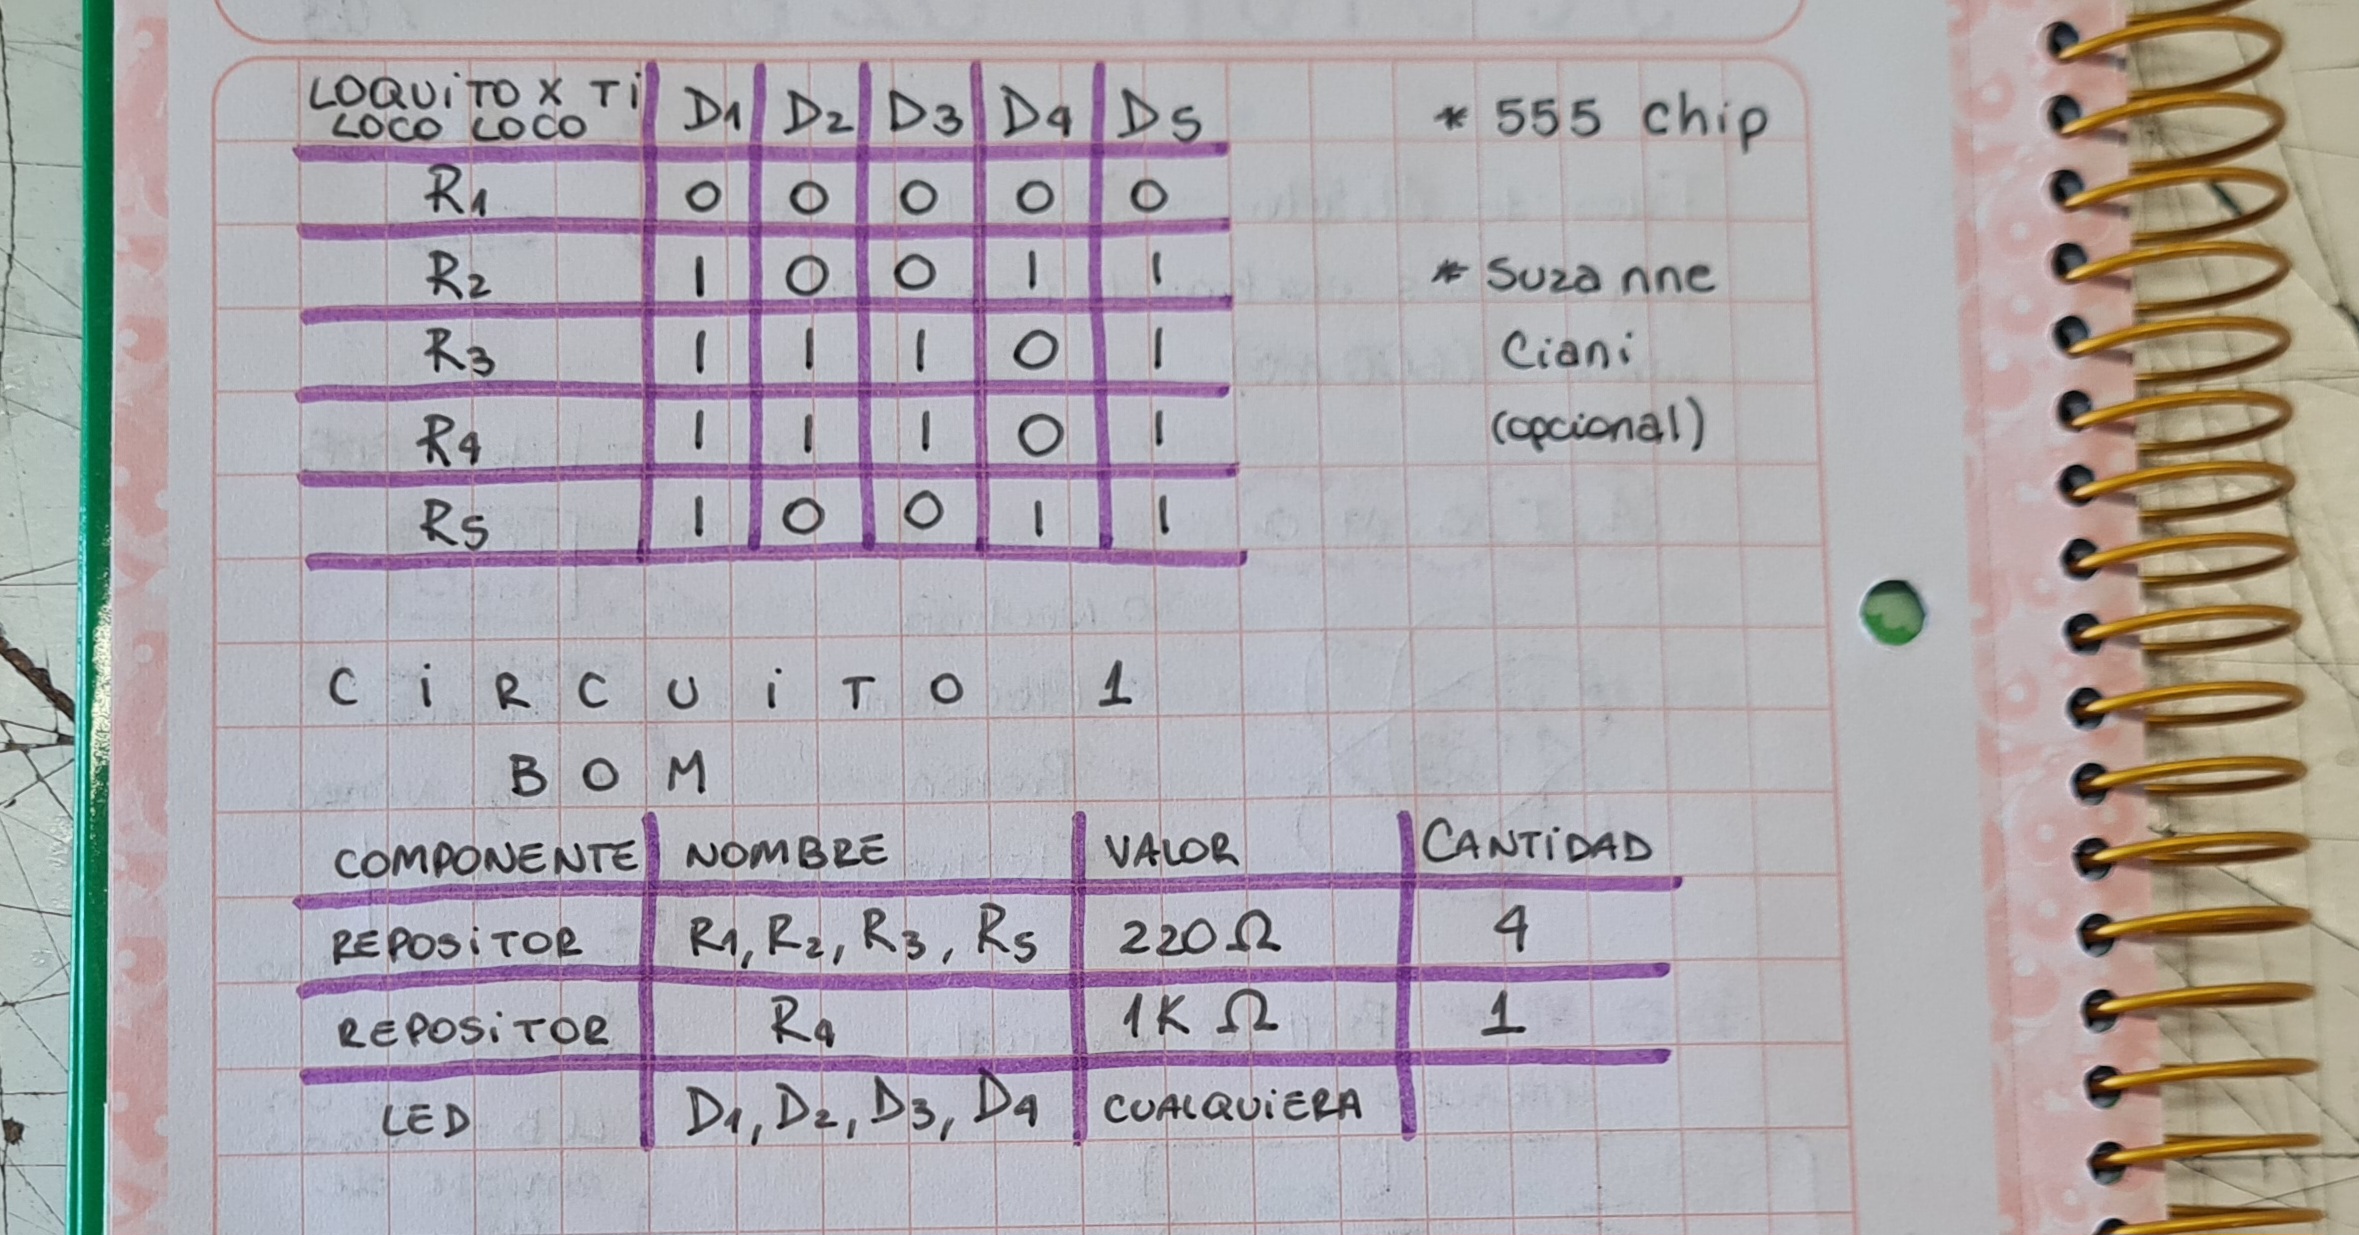 LOQUiTO X Ti D1 D2 D3 D4 D5
LOCO LOCO
R1 0 0 0 0 0
R2 1 0 0 1 1
R3 1 1 1 0 1
R4 1 1 1 0 1
R5 1 0 0 1 1
* 555 chip
* Suzanne
Ciani
(opcional)
CiRCUiTO 1
BOM
COMPONENTE NOMBRE VALOR CANTiDAD
REPOSiTOR R1, R2, R3, R5 220 Ω 4
REPOSiTOR R4 1K Ω 1
LED D1, D2, D3, D4 CUALQUiERA